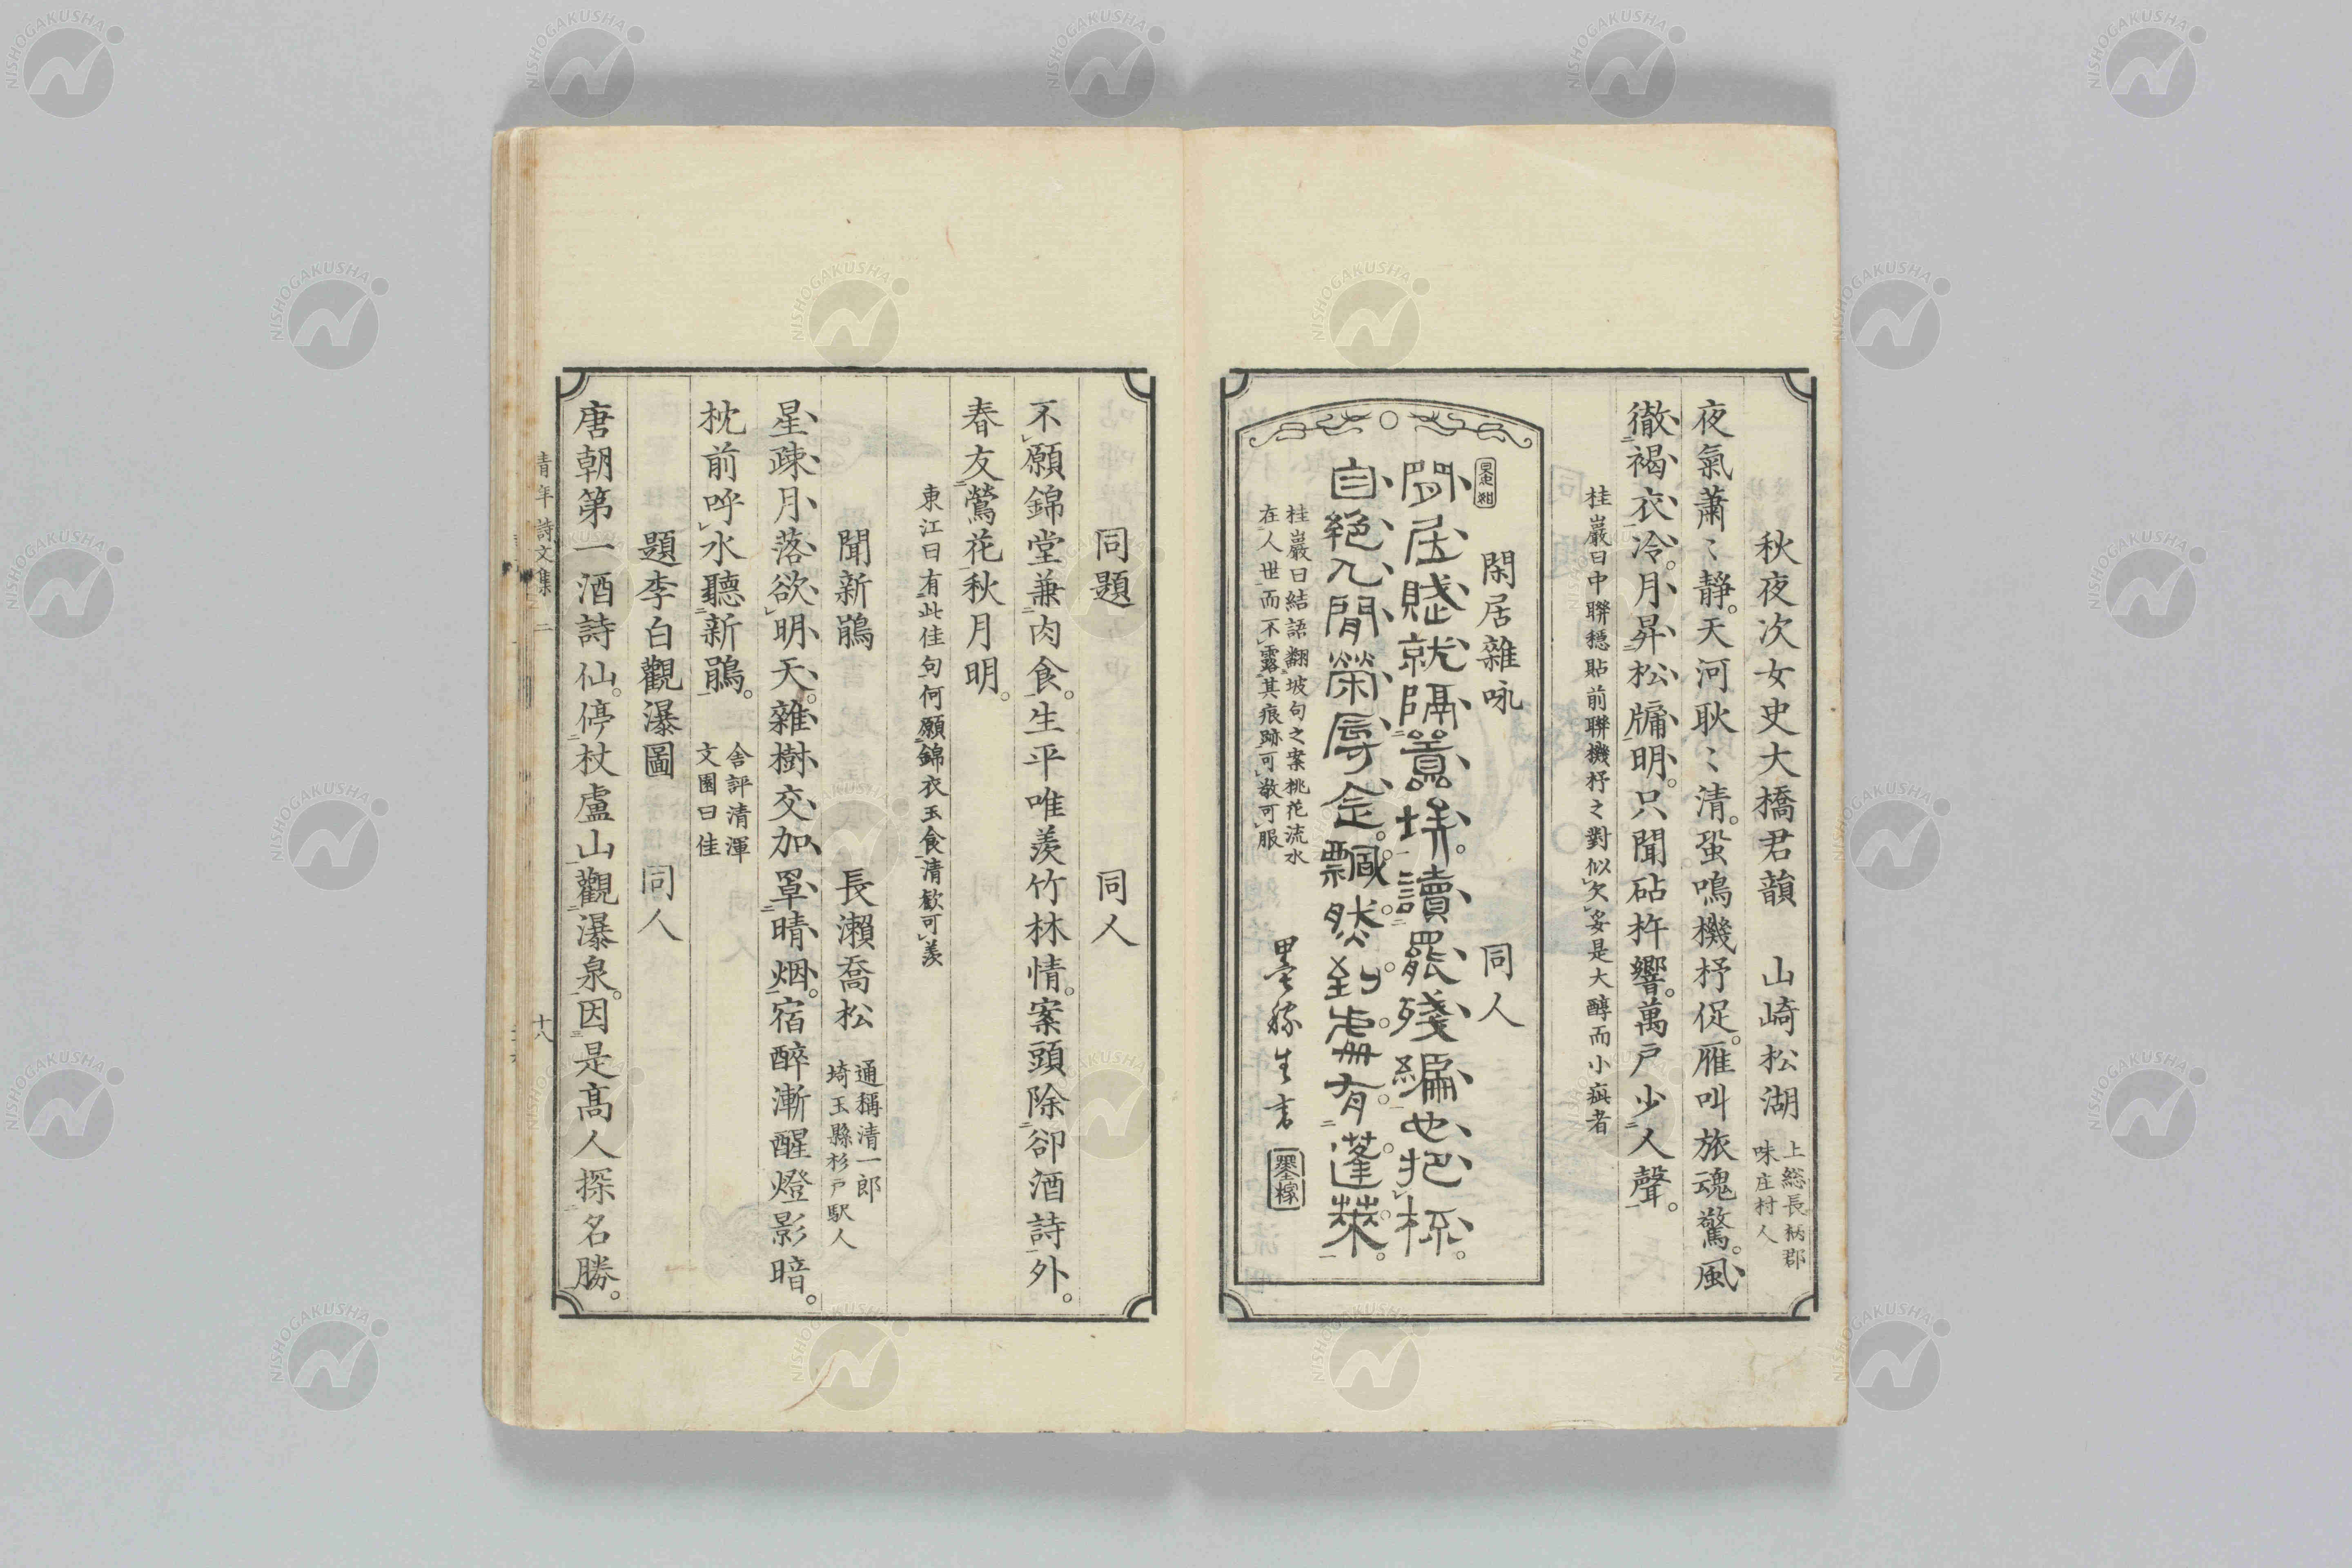 秋夜次女史大橋君韻　山崎松湖　上総長柄郡
味庄村人
夜氣蕭〻靜。天河耿〻清。蛩鳴機杼促。雁叫旅魂驚。風
徹褐衣冷。月昇松牖明。只聞砧杵響。萬戸少人聲。
桂巖曰中聯穩貼前聯機杼之對似欠妥是大醇而小疵者
閑居雜咏　同人
閒居賤就隔囂埃。讀罷殘編也把杯。
自絕人間榮辱念。飄然到處有蓬萊。
桂巖曰結語翻坡句之案桃花流水
在人世而不露其痕跡可敬可服
墨稼生書
墨稼
同題　同人
不願錦堂兼肉食。生平唯羨竹林情。案頭除卻酒詩外。
春友鶯花秋月明。
東江曰有此佳句何願錦衣玉食清歓可羨
聞新鵑　長瀨喬松　通稱清一郎
埼玉縣杉戸駅人
星疎月落欲明天。雜樹交加罩晴烟。宿醉漸醒燈影暗。
枕前呼水聽新鵑。　舍評清渾
文園曰佳
題李白觀瀑圖　同人
唐朝第一酒詩仙。停杖盧山觀瀑泉。因是髙人探名勝。
青年詩文集二　十八